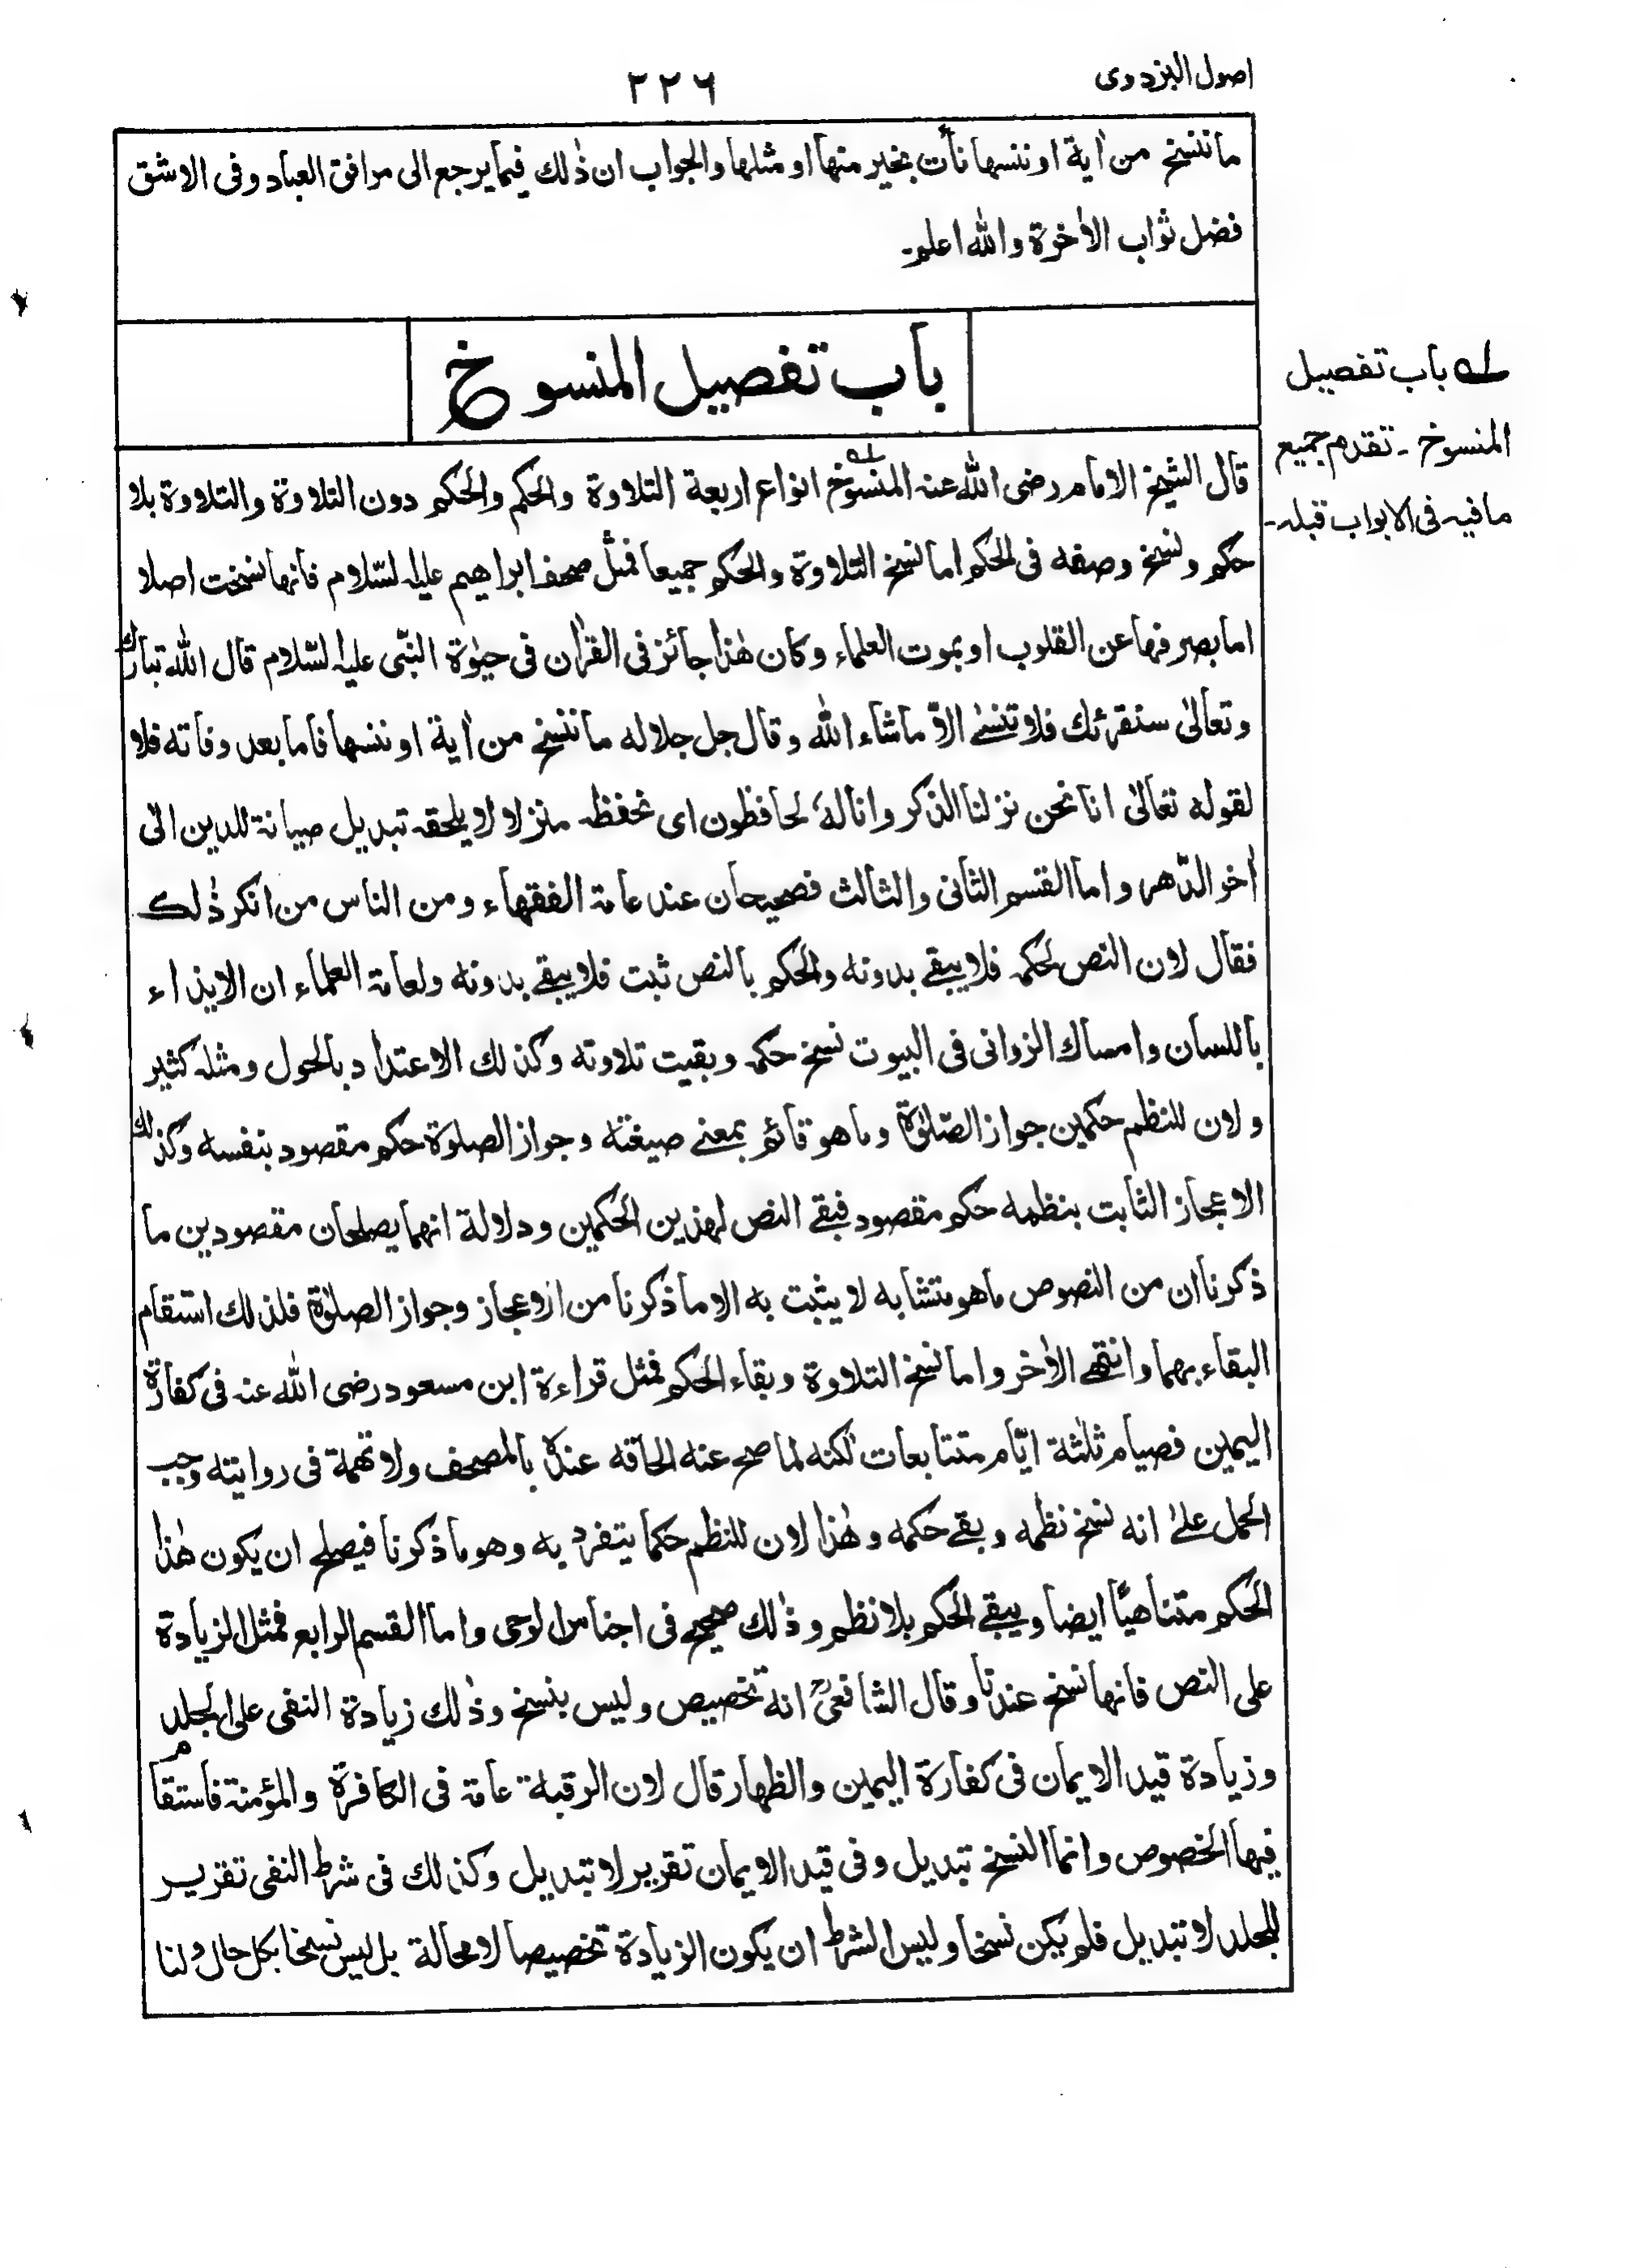 اصول البزدوی
۲۲۶
ما ننسخ من اٰية او ننسها نأت بخير منها او مثلها والجواب ان ذٰلك فيما يرجع الى مرافق العباد وفى الاشق
فضل ثواب الاٰخرة والله اعلم۔
باب تفصيل المنسوخ
قال الشيخ الامام رضى الله عنه المنسوخ انواع اربعة التلاوة والحكم والحكم دون التلاوة والتلاوة بلا
حكم ونسخ وصفه فى الحكم اما نسخ التلاوة والحكم جميعا فمثل صحف ابراهيم عليه السّلام فانها نسخت اصلا
اما بصرفها عن القلوب او بموت العلماء وكان هٰذا جائز فى القراٰن فى حيوٰة النبّى عليه السّلام قال الله تبارك
وتعالىٰ سنقرئك فلا تنسىٰ الاّ ماشاء الله وقال جل جلاله ما ننسخ من اٰية او ننسها فاما بعد وفاته فلا
لقوله تعالىٰ انا نحن نزلنا الذكر وانا لهٗ لحافظون اى نحفظه منزلا لا يلحقه تبديل صيانة للدين الى
اٰخر الدّهر واما القسم الثانى والثالث فصحيحان عند عامة الفقهاء ومن الناس من انكر ذٰلك
فقال لان النص لحكمه فلا يبقے بدونه والحكم بالنص ثبت فلا يبقے بدونه ولعامة العلماء ان الايذاء
باللسان وامساك الزوانى فى البيوت نسخ حكمه وبقيت تلاوته وكذلك الاعتداد بالحول ومثله كثير
ولان للنظم حكمين جواز الصّلوٰة وما هو قائم بمعنے صيغته وجواز الصلوٰة حكم مقصود بنفسه وكذلك
الاعجاز الثابت بنظمه حكم مقصود فبقے النص لهذين الحكمين ودلالة انهما يصلحان مقصودين ما
ذكرنا ان من النصوص ما هو متشابه لا يثبت به الا ما ذكرنا من الاعجاز وجواز الصلوٰة فلذلك استقام
البقاء بهما وانتهے الاٰخر واما نسخ التلاوة وبقاء الحكم فمثل قراءة ابن مسعود رضى الله عنه فى كفارة
اليمين فصيام ثلثة ايّام متتابعات لٰكنه لما صح عنه الحاقه عندهٗ بالمصحف ولا تهمة فى روايته وجب
الحمل علىٰ انه نسخ نظمه وبقے حكمه وهٰذا لان للنظم حكما يتفرد به وهو ما ذكرنا فيصلح ان يكون هٰذا
الحكم متناهيًا ايضا ويبقے الحكم بلا نظم وذٰلك صحيح فى اجناس الوحى واما القسم الرابع فمثل الزيادة
على النص فانها نسخ عندنا وقال الشافعىؒ انه تخصيص وليس بنسخ وذٰلك زيادة النفى على الجلد
وزيادة قيد الايمان فى كفارة اليمين والظهار قال لان الرقبة عامة فى الكافرة والمؤمنة فاستقام
فيها الخصوص وانما النسخ تبديل وفى قيد الايمان تقرير لا تبديل وكذلك فى شرط النفى تقرير
للجلد لا تبديل فلم يكن نسخا وليس الشرط ان يكون الزيادة تخصيصا لا محالة بل ليس نسخا بكل حال ولنا
لہ باب تفصيل
المنسوخ ۔ تقدم جميع
ما فيه فى الابواب قبله۔